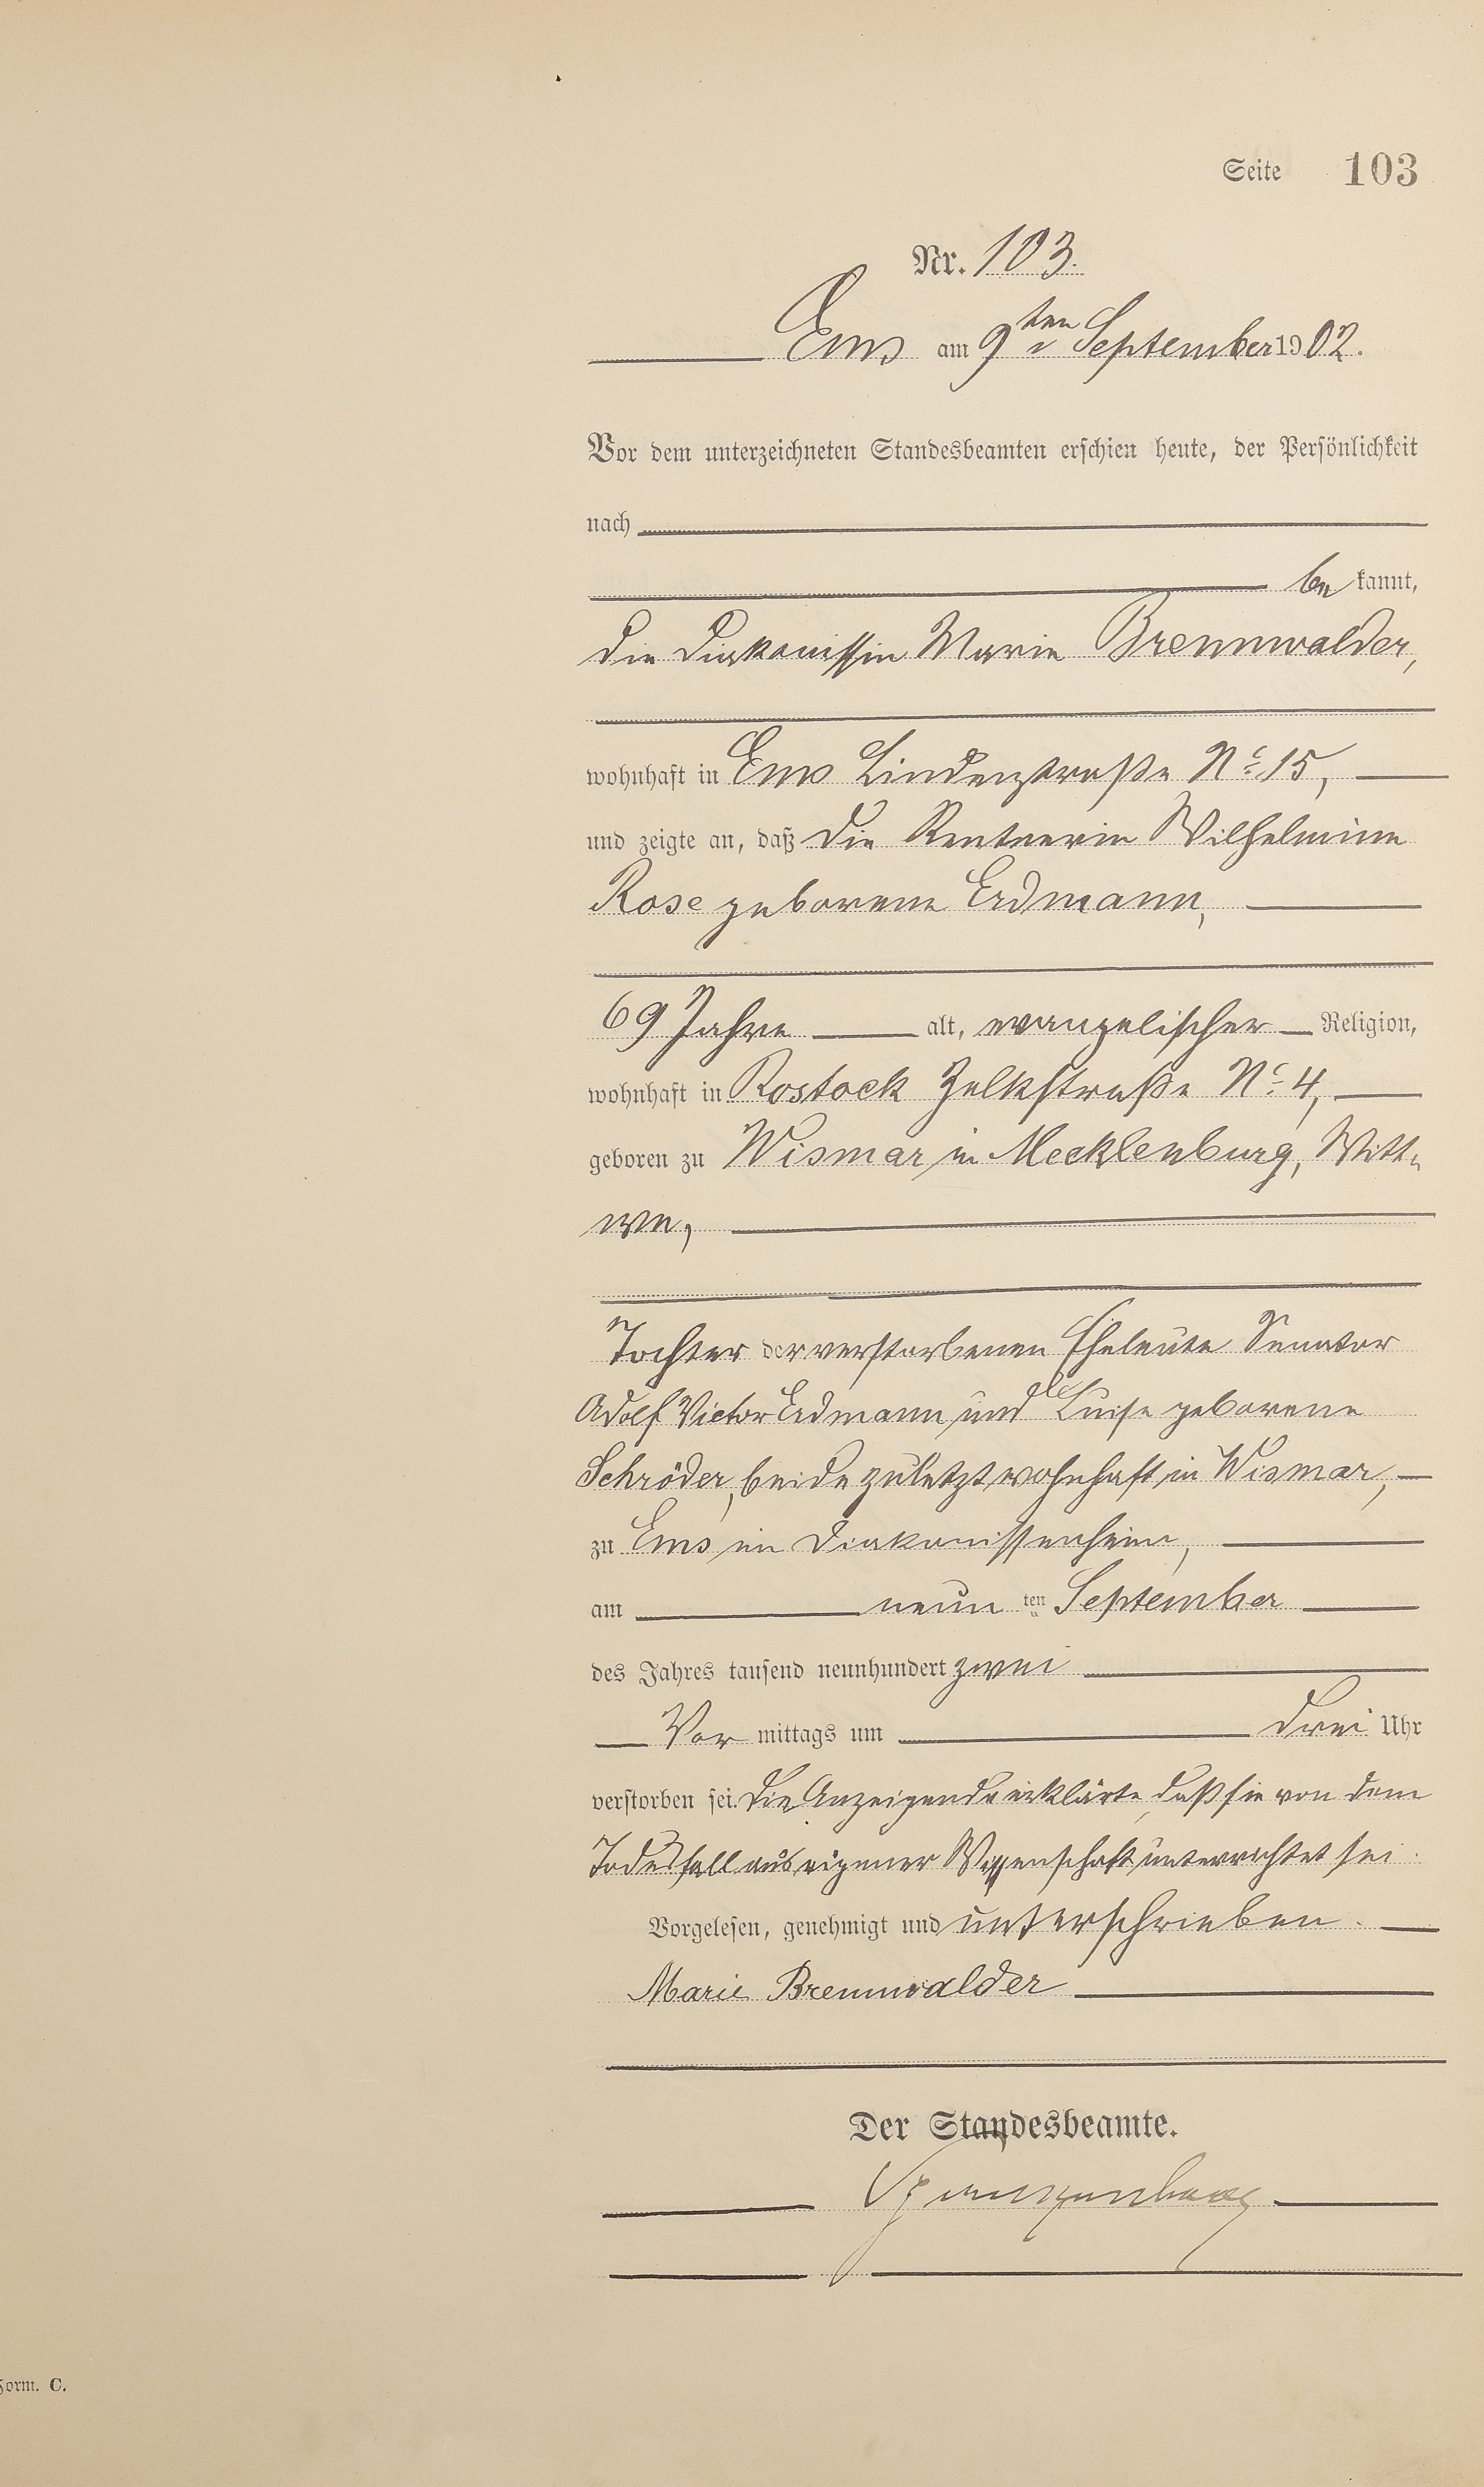 Seite 103
Nr. 103.
Ems am 9ten September 1902.
Vor dem unterzeichneten Standesbeamten erschien heute, der Persönlichkeit
nach
be kannt,
die Diakonissin Marie Brennwalder,
wohnhaft in Ems Lindenstraße No 15,
und zeigte an, daß die Rentnerin Wilhelmine
Rose geborene Erdmann,
69 Jahre alt, evangelischer Religion,
wohnhaft in Rostock Zelkstraße No 4,
geboren zu Wismar in Mecklenburg, Witt-
we,
Tochter der verstorbenen Eheleute Senator
Adolf Victor Erdmann und Luise geborene
Schröder, beide zuletzt wohnhaft in Wismar,
zu Ems im Diakonissenheim,
am neun ten September
des Jahres tausend neunhundert zwei
Vor mittags um drei Uhr
verstorben sei. Die Anzeigende erklärte, daß sie von dem
Todesfall aus eigener Wissenschaft unterrichtet sei.
Vorgelesen, genehmigt und unterschrieben.
Marie Brennwalder
Der Standesbeamte.
Form. C.